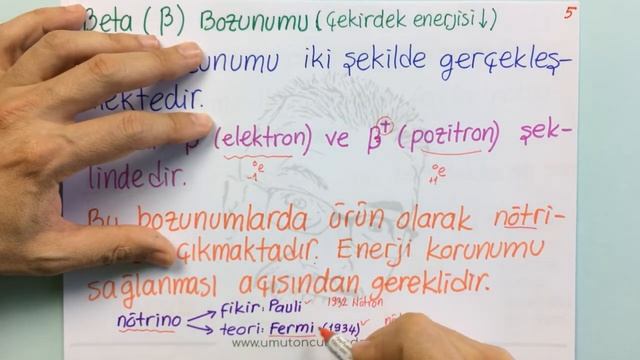 Beta (β) Bozunumu (Çekirdek enerjisi↓) 5
iki şekilde gerçekleş-
mektedir.
β (elektron) ve β⁺ (pozitron) şek-
⁰₋₁e ⁰₊₁e
lindedir.
Bu bozunumlarda ürün olarak nötri-
çıkmaktadır. Enerji korunumu
sağlanması açısından gereklidir.
nötrino → fikir: Pauli ✓ 1932 Nötron
→ teori: Fermi (1934) ✓